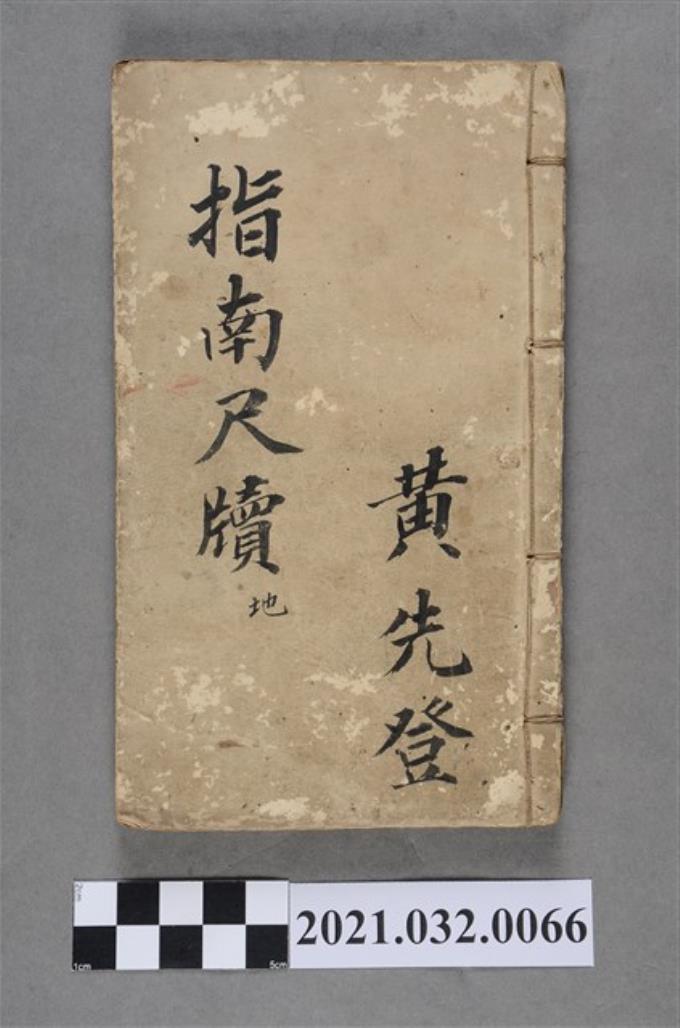 黄先登
指南尺牘
地
2cm
1cm
5cm
2021.032.0066